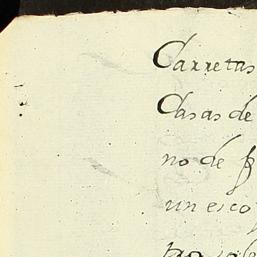 Carretas
Casas de
no de
un esco